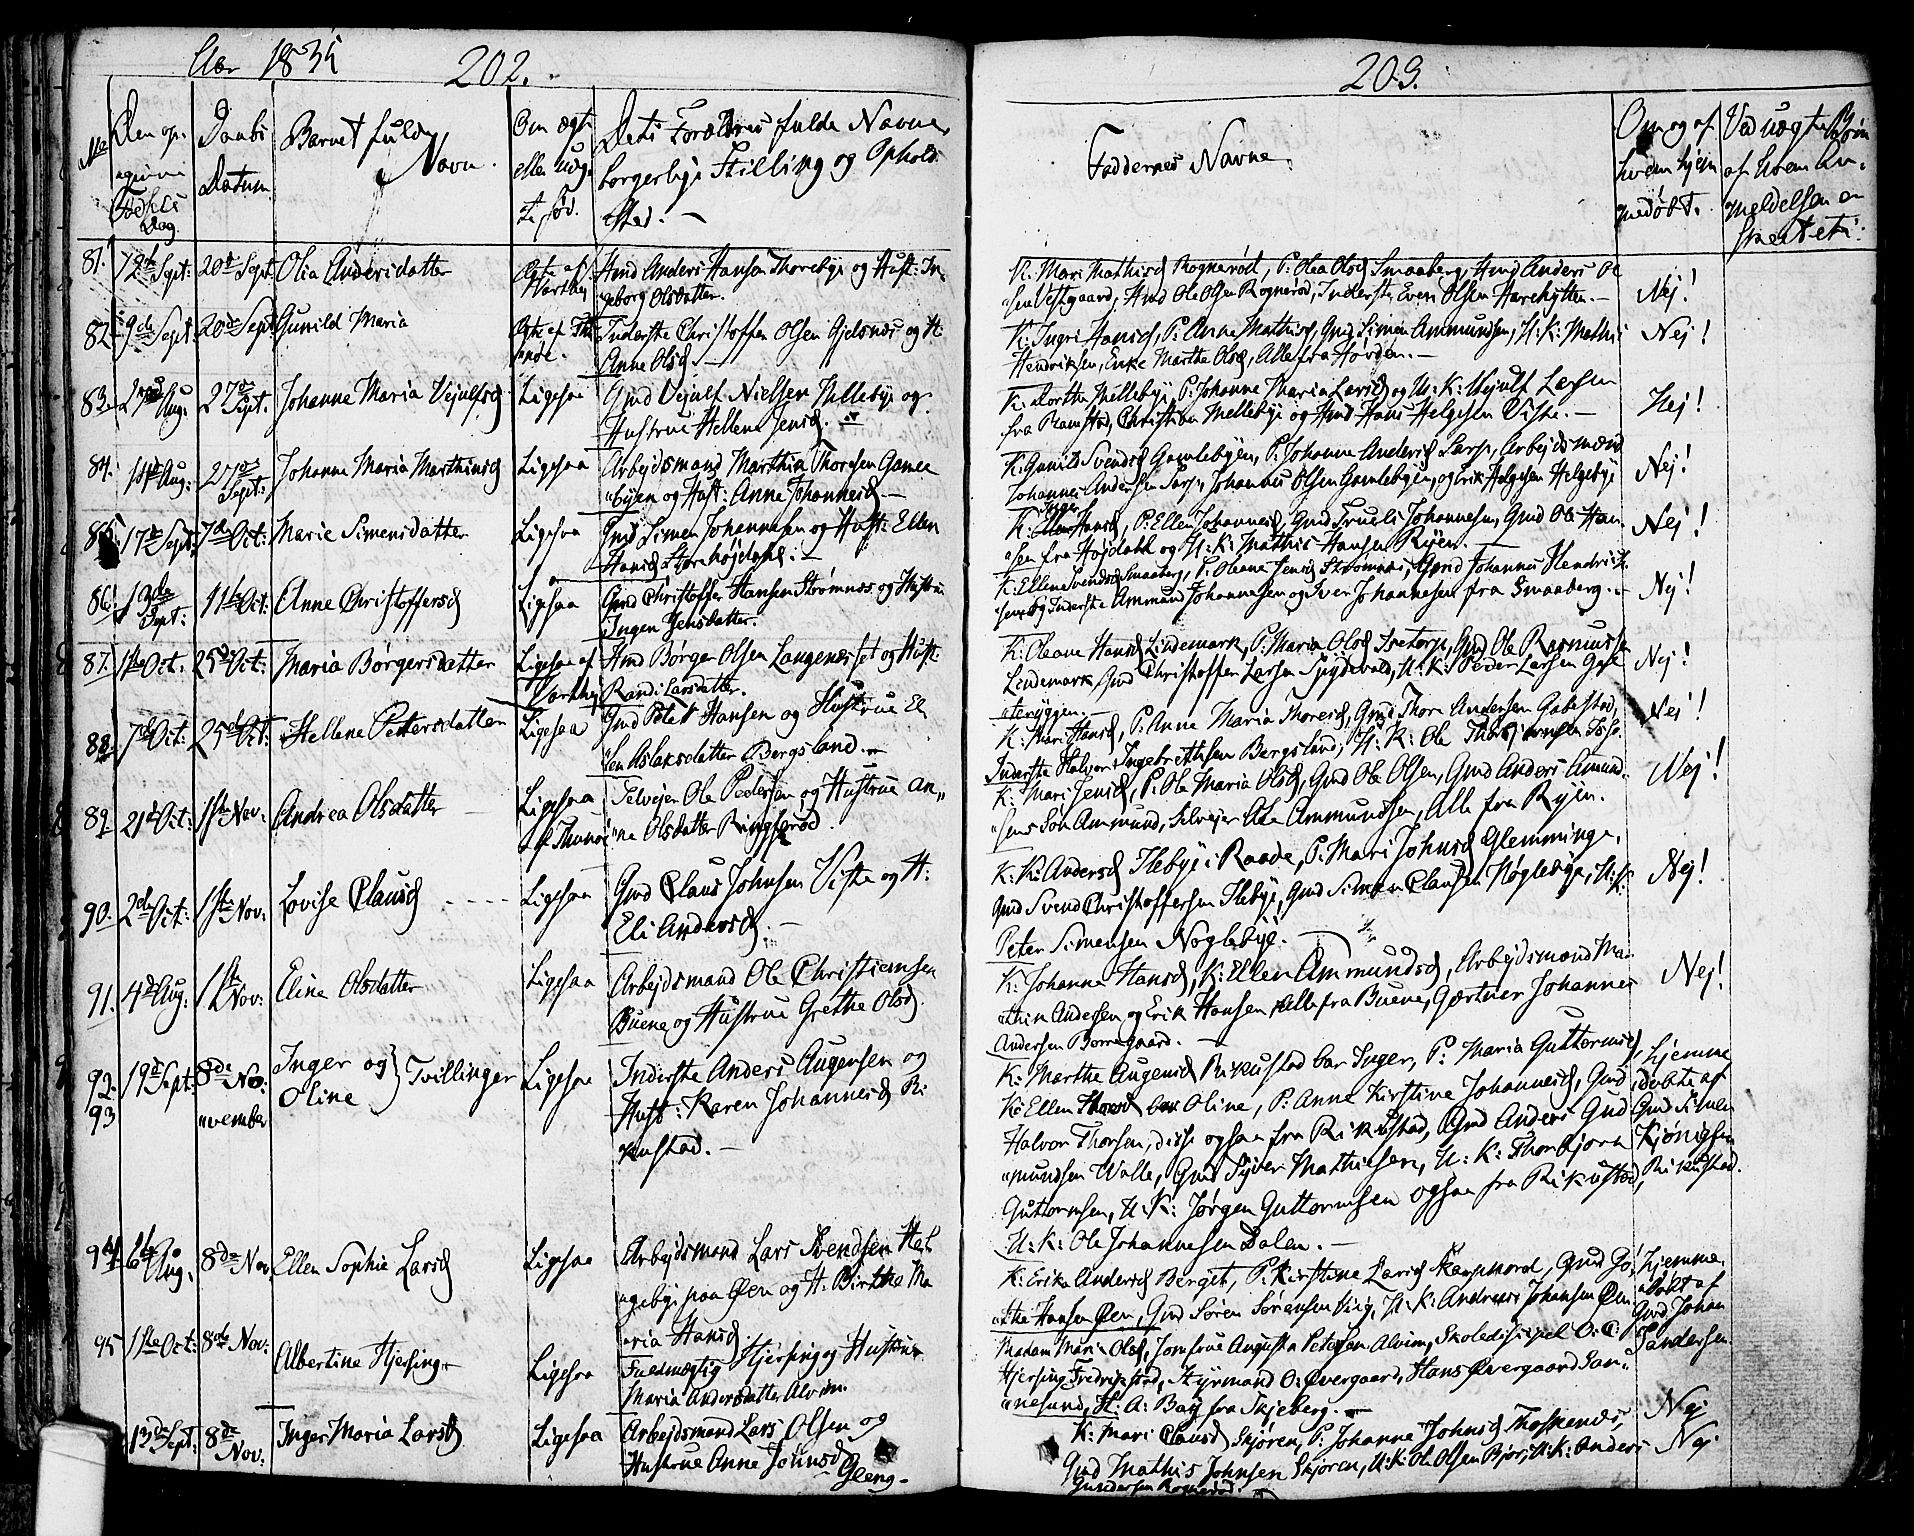 Aar 1835
202.
No
Den op-
Daabs
Datum.
Barnets fulde
Navn.
Om ægte
eller uæg-
te fød.
Dets Forældres fulde Navne,
borgerlige Stilling og Opholds
sted. –
81.
12te Sept:
20de Sept
Olia Andersdatter
Ægte af
Varthey
Gmd Anders Hansen Thorebye og Hust: In-
geborg Olsdatter.
82.
9de Sept:
20de Sept
Gunild Maria
Inderste Christoffer Olsen Gjelsnes og H:
Anne Olsd. –
83.
Aug:
27de
Sept.
Johanne Maria Vejulfsd
Ligesaa
Gmd Vejulf Nielsen Mellebye og
Hustrue Hellene Jensd.
84.
14de Aug:
27de
Sept:
Johanne Maria Marthinsd
Ligesaa
Arbejdsmand Marthin Thoresen Gamle
"byen og Hust: Anne Johannesd –
85
17de Sept:
7de Oct:
Marie Simensdatter
Ligesaa
Gmd Simen Johannesen og Hust: Ellen
Hansd Storehøjdahl. –
86.
13de
Sept:
11te Oct:
Anne Christoffersd
Ligesaa
Gmd Christoffer Hansen Strømnes og Hustrue
Ingen Jensdatter.
87.
1ste Oct.
25de Oct:
Maria Børgersdatter
Ligesaa af
Varthey
Gmd Børger Olsen Langenesset og Hust:
Randi Larsdatter.
88
7de Oct:
25de Oct:
Hellene Pettersdatter
Ligesaa
Gmd Peter Hansen og Hustrue El-
"len Aslaksdatter Bergsland. –
89
21de Oct:
1ste Nov:
Andrea Olsdatter
Ligesaa
af Thunøe
Selvejer Ole Pedersen og Hustrue An-
"ne Olsdatter Ringsrød.
90.
2den Oct:
1ste Nov:
Lovise Clausd
Ligesaa
Gmd Claus Johnsen Viste og H:
Eli Andersd. –
91.
4de Aug:
1ste
Nov:
Eline Olsdatter
Ligesaa
Arbejdsmand Ole Christiansen
Buene og Hustrue Grethe Olsd.
92.
93
19de Sept:
8de No-
"vember
Inger og
Oline } Tvillinger
Ligesaa
Inderste Anders Augensen og
Hust: Karen Johannesd Ri-
kustad. –
94.
6te
Aug.
8de Nov
Ellen Sophie Larsd
Ligesaa
Arbejdsmand Lars Svendsen Hel-
"gebye paa Øen og H: Birthe Ma-
"ria Hansd.
95
1ste Oct:
8de Nov:
Albertine Hjersing
Ligesaa
Fuldmægtig Hjersing og Hustrue
Maria Andersdatter Alvim.
13de Sept:
8de
Nov:
Inger Maria Larsd
Ligesaa
Arbejdsmand Lars Olsen og
Hustrue Anne Johnsd
Gleng –
203.
Faddernes Navne.
Om og af
hvem hjem-
medøbt.
Ved uægte Børn
af hvem An-
meldelsen er
skeet etc:
K. Mari Mathisd Rognerød, P. Olea Olsd Smaaberg, Gmd Anders Ol-
"sen Vestgaard, Gmd Ole Olsen Rognerød, Inderste Even Olsen Harehytten. –
Nej!
K: Ingri Hansd, P: Anne Mathisd, Gmd Simen Ammundsen, U: K: Mathis
Hendriksen, Enke Marthe Olsd, Alle fra Hovden. –
Nej!
K. Dorthe Mellebye, P. Johanne Maria Larsd og U: K: Vejulf Larsen
fra Ramstad, Christian Mellebye og Gmd Hans Helgesen Viste. –
Nej!
K: Gunild Svendsd Gamlebyen, P. Johanne Andersd Sarp, Arbejdsmænd
Johannes Andersen Sarp, Johannes Olsen Gamlebyen, og Erik Helgesen Helgebye
Nej!
K: Hansd, P: Ellen Johannesd, Gmd Truels Johannesen, Gmd Ole Han-
"sen fra Højdahl og U: K: Mathis Hansen Ryen. –
Nej!
K: Ellene Svendsd Smaaberg, P. Oleane Jensd Strømnes, Gmd Johannes Hendrik-
sen og Inderste Ammund Johannesen og Iver Johannesen fra Smaaberg. –
Nej!
K: Oleane Hansd Lindemark, P. Maria Olsd Tvetorp, Gmd Ole Rasmussen
Lindemark, Gmd Christoffer Larsen Spydevold, U: K: Peder Larsen Gals-
"terøggen. –
Nej!
K: Mari Hansd, P: Anne Maria Thoresd, Gmd Thore Andersen Gabestad,
Inderste Halvor Ingebrethsen Bergsland, U: K: Ole Thorbjørnsen
Nej!
K: Mari Jensd, P: Ole Maria Olsd, Gmd Ole Olsen, Gmd Anders Amund-
"sens Søn Ammund, Selvejer Ole Ammundsen, Alle fra Ryen.
Nej!
K: K: Andersd Flebye i Raade, P. Mari Johnsd Glemminge,
Gmd Svend Christoffersen Flebye, Gmd Simen Clausen Nøglebye, U: K:
Peter Simensen Nøglebye. –
Nej!
K: Johanne Hansd, K: Ellen Ammundsd, Arbejdsmand Ma-
"thin Andersen og Erik Hansen Alle fra Buene, Gartner Johannes
Andersen Borregaard. –
Nej!
K: Marthe Augensd Rikustad bar Inger, P: Maria Guttormsd,
K: Ellen Thoresd bar Oline, P: Anne Kirstine Johannesd, Gmd
Halvor Thorsen, disse ogsaa fra Rikustad, Gmd Anders Gud-
"mundsen Walle, Gmd Syver Mathiesen, U: K: Thorbjørn
Guttormsen, U: K: Jørgen Guttormsen ogsaa fra Rikustad,
U: K: Ole Johannesen Dalen. –
hjemme
døbte af
Gmd Simen
Kjønigsen
Rikustad.
K: Erika Andersd Berget, P: Kirstine Larsd Skarpnord, Gmd Gö-
"the Hansen Øen, Gmd Søren Sørensen Ving, U: K: Andreas Johansen Øen
hjemme-
døbt af
Gmd Johan
Sandersen
Madam Marie Olsd, Jomfrue Augusta Petersen Alvim, Skoledisipel O: C:
Hjersing Fredrikstad, Styrmand O: Øvergaard, Hans Øvergaard San-
"nesund, H: A: Bay fra Skjeberg. –
Nej
K: Mari Clausd Skjøren, P. Johanne Johnsd Thospenes,
Gmd Mathis Johnsen Skjøren, U: K: Ole Olsen Bjør, U: K: Anders
Gundersen Rognerød.
Nej